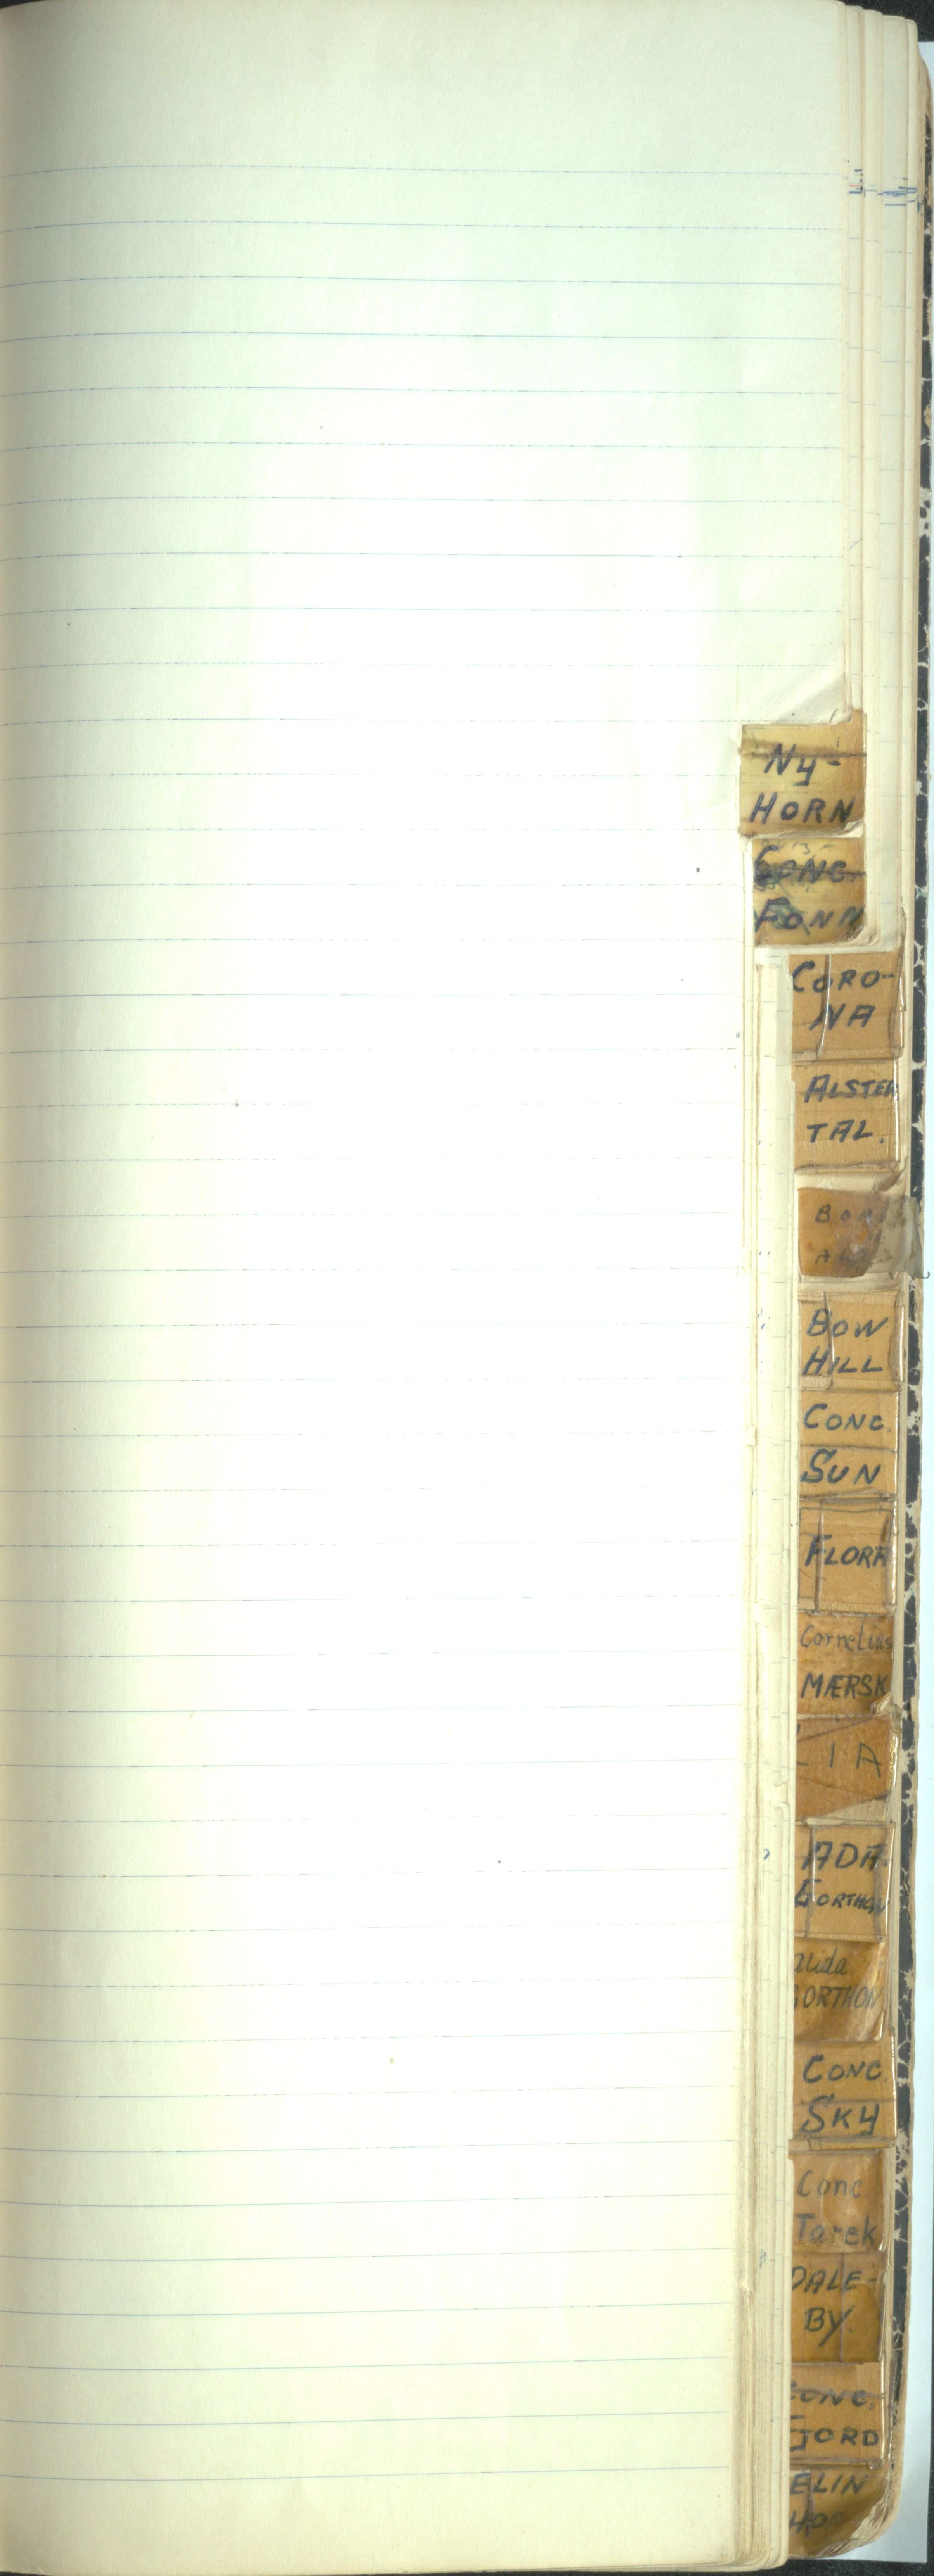 Ny-
HORN
CONC.
FONN
CORO-
NA
ALSTER
TAL.
BOW
HILL
CONC.
SUN
FLORA
Cornelius
MÆRSK
LIA
ADA
GORTHON
GORTHON
CONC.
SKY
Conc.
Tarek
DALE-
BY.
CONC.
FJORD
ELIN